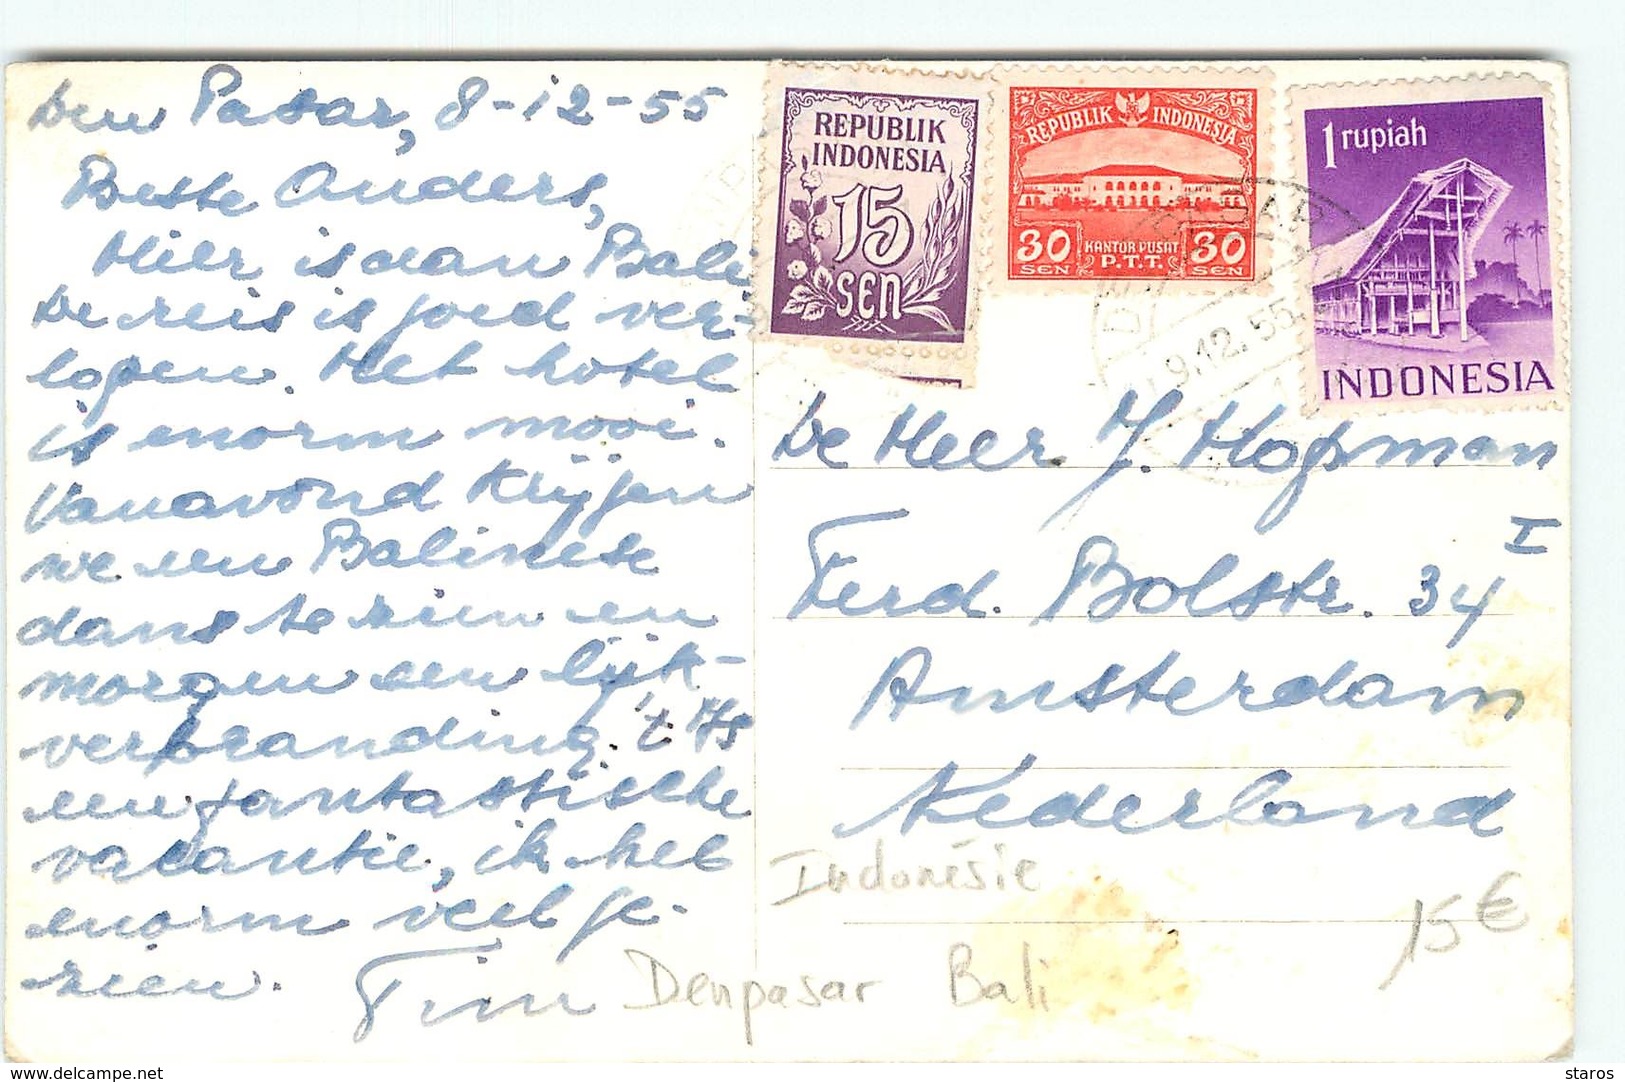 Den Pasar, 8-12-55
Beste Anders,
Hier is dan Bali.
De reis is goed ver-
lopen. Het hotel
is enorm mooi.
Vanavond krijgen
we een Balinese
dans te zien en
morgen een lijk-
verbranding. 't Is
een fantastische
vacantie, ik heb
enorm veel ge-
zien. Tim
REPUBLIK
INDONESIA
15
SEN
REPUBLIK INDONESIA
30 SEN
KANTOR PUSAT
P.T.T.
30 SEN
1 rupiah
INDONESIA
9.12.55
De Heer J. Hopman
Ferd. Bolstr. 34 I
Amsterdam
Nederland
Indonésie
15 €
Denpasar Bali
delcampe.net
staros